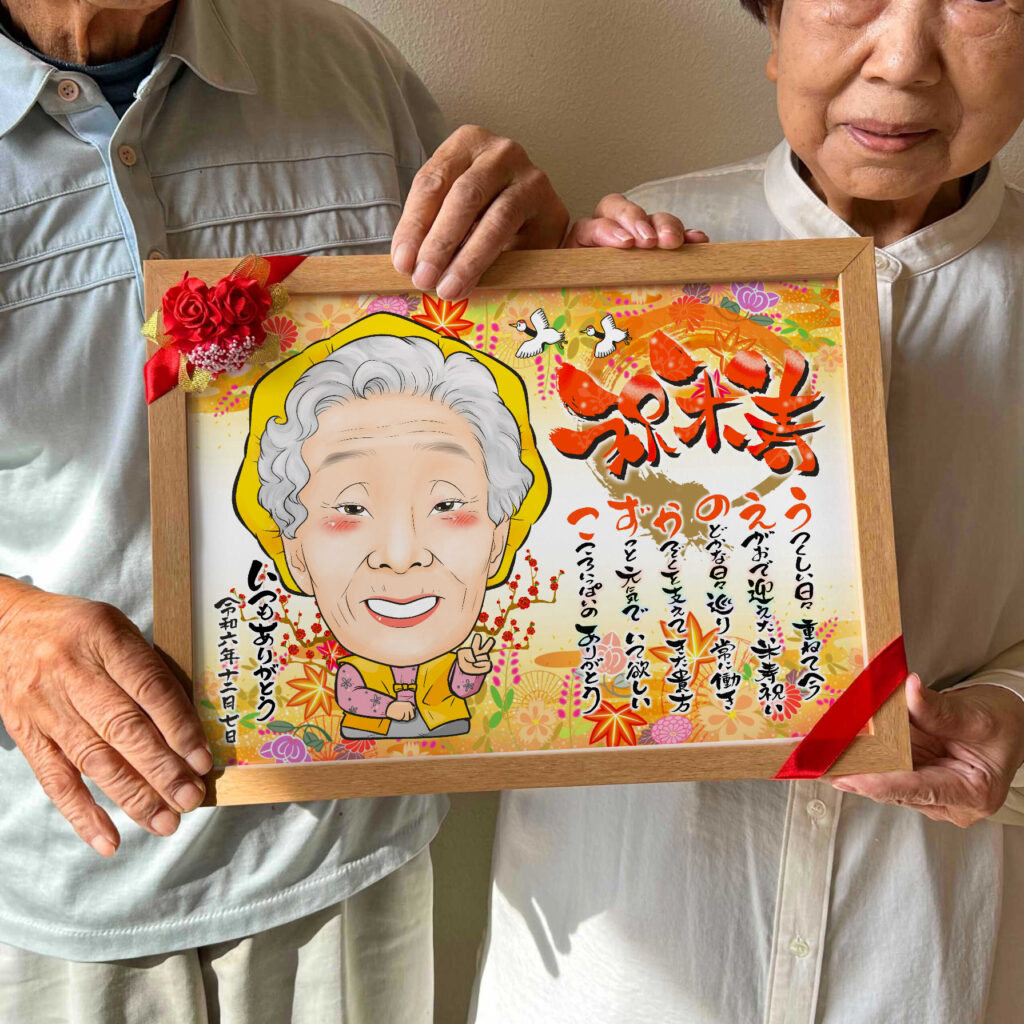 祝米寿
うつくしい日々 重ねてへて
えがおで迎えた 米寿祝い
のどかな日々巡り 常に働き
かぞくを支えて きた貴方
ずっと元気で いて欲しい
こころいっぱいの ありがとう
いつもありがとう
令和六年十二月七日